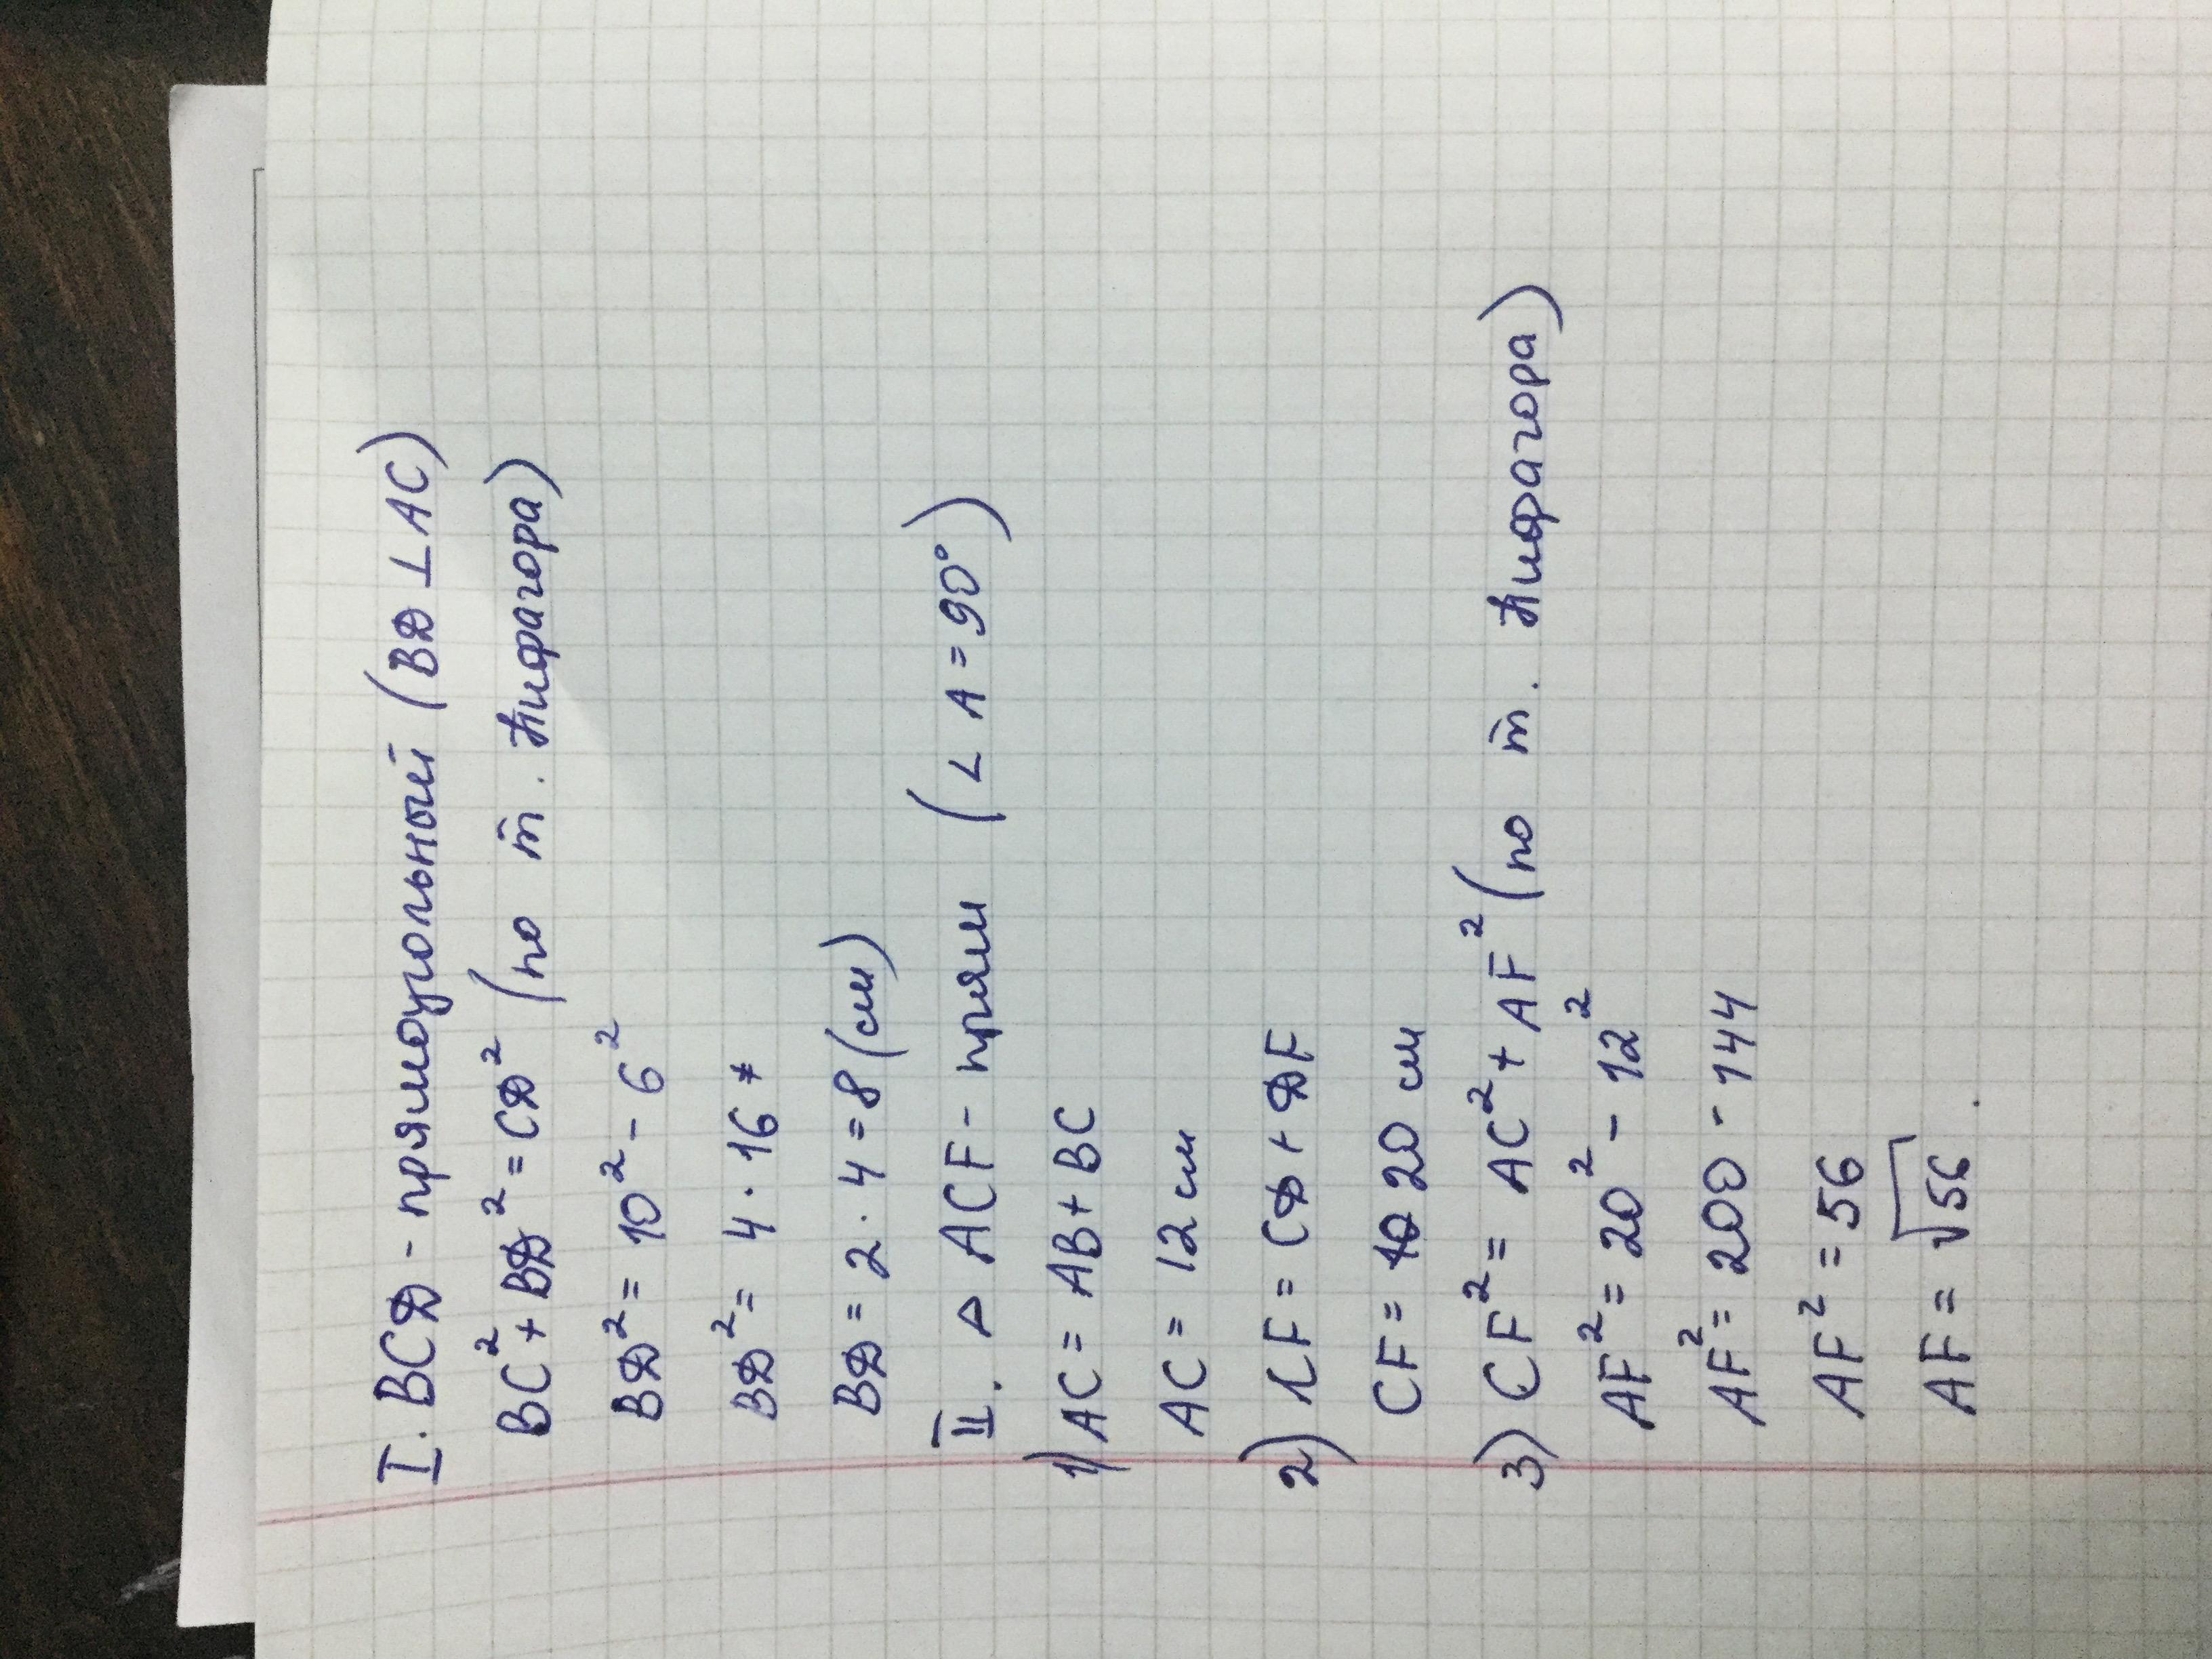 I. BCD - прямоугольный (BD ⊥ AC)
BC² + BD² = CD² (по т. Пифагора)
BD² = 10² - 6²
BD² = 4 · 16
BD = 2 · 4 = 8 (см)
II. △ ACF - прям (∠ A = 90°)
1) AC = AB + BC
AC = 12 см
2) CF = CD + DF
CF = 20 см
3) CF² = AC² + AF² (по т. Пифагора)
AF² = 20² - 12²
AF² = 200 - 144
AF² = 56
AF = √56 .